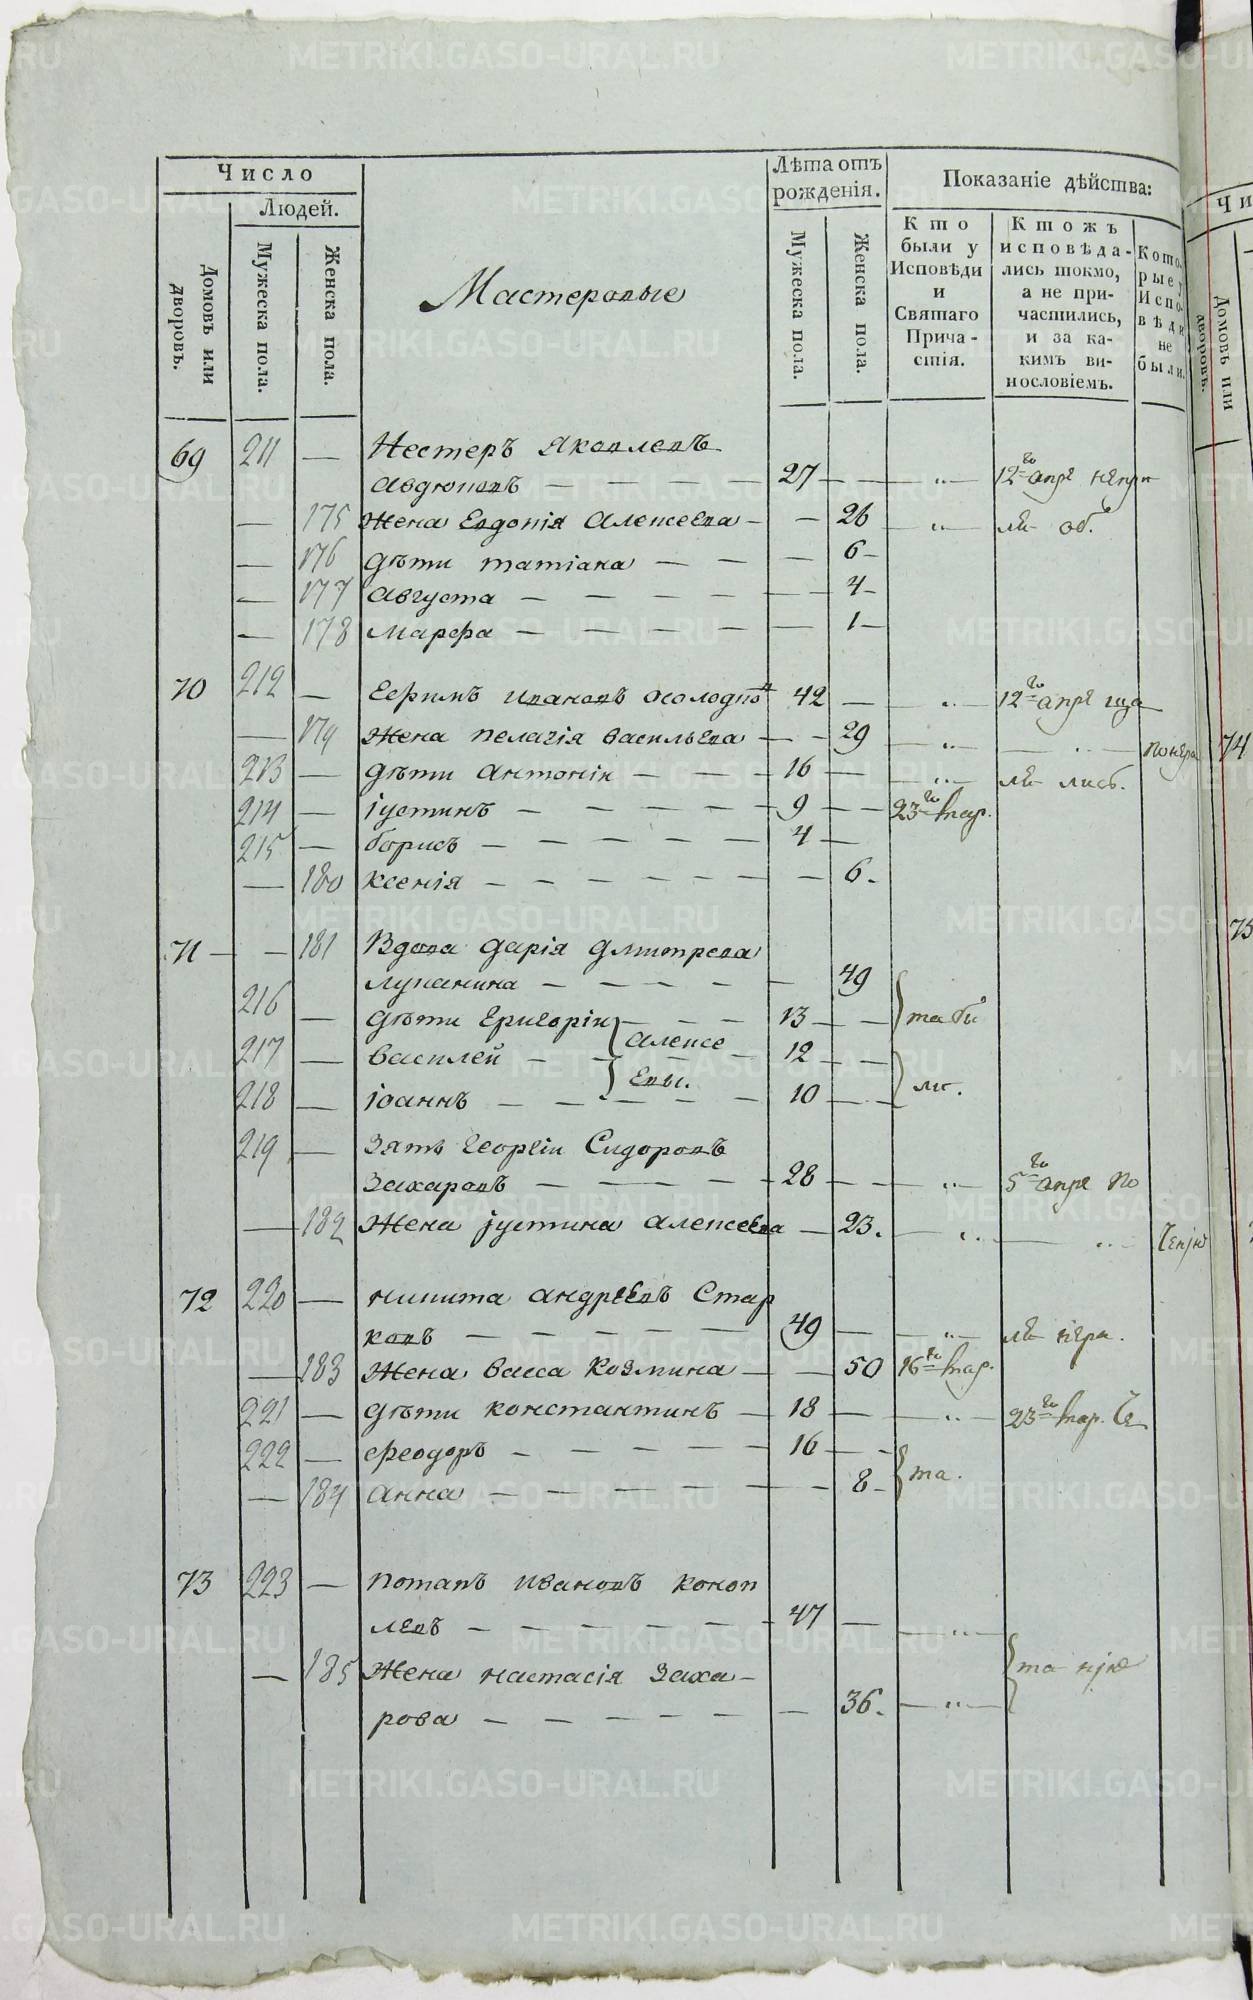 Число
Людей.
Домовъ или дворовъ.
Мужеска пола.
Женска пола.
Мастеровые
Лѣта отъ рожденія.
Мужеска пола.
Женска пола.
Показаніе дѣйства:
Кто были у Исповѣди и Святаго Причастія.
Ктожъ исповѣдались токмо, а не причастились, и за какимъ винословіемъ.
Которые у Исповѣди не были.
69 211 — Нестеръ Яковлевъ
Авдюковъ — 27 — 12го апре
— 175 Жена Евдокія Алексеева — 26
— 176 дѣти татіана — 6
— 177 Августа — 4
— 178 Марфа — 1
70 212 — Ефимъ Ивановъ 42 — 12го апре
— 179 Жена пелагія васильева — 29
213 — дѣти антоніи — 16
214 — іустинъ — 9 — 23го мар.
215 — борисъ — 4
— 180 ксенія — 6.
71 — 181 Вдова дарія дмитрева
лупанина — 49
216 — дѣти Григоріи — 13
217 — василей — Алексе 12
218 — іоаннъ — Евы. 10
219 — Зять георгіи Сидоровъ
Захаровъ — 28 — 5го апре
— 182 Жена іустина алексеева — 23.
72 220 — никита андреевъ Стар
ковъ — 49
— 183 Жена васса Козмина — 50 16го мар.
221 — дѣти константинъ — 18 — 23го мар.
222 — феодоръ — 16
— 184 анна — 8 та.
73 223 — потапъ ивановъ коноп
левъ — 47
— 185 Жена настасія Заха-
рова — 36.
Чи
Домовъ или дворовъ.
74
75
METRIKI.GASO-URAL.RU